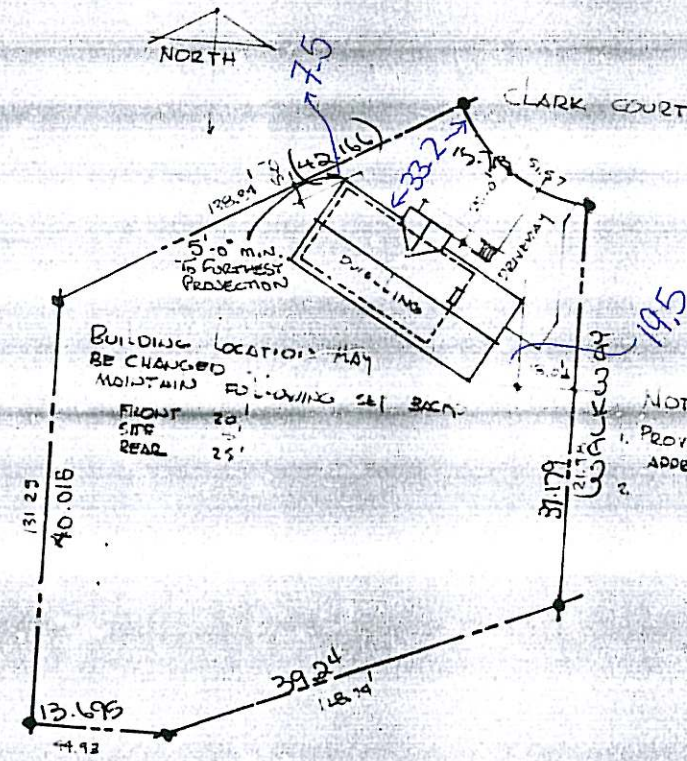 NORTH
7.5
CLARK COURT
(42.166)
33.2
51.57
5'-0" MIN.
TO FURTHEST
PROJECTION
DWELLING
DRIVEWAY
19.5
BUILDING LOCATION MAY
BE CHANGED
MAINTAIN FOLLOWING SET BACK
FRONT 20'
SITE
REAR 25'
WALKWAY
NOT
1. PROV
ADDR
2.
131.29
40.016
37.179
39.24
13.695
44.93